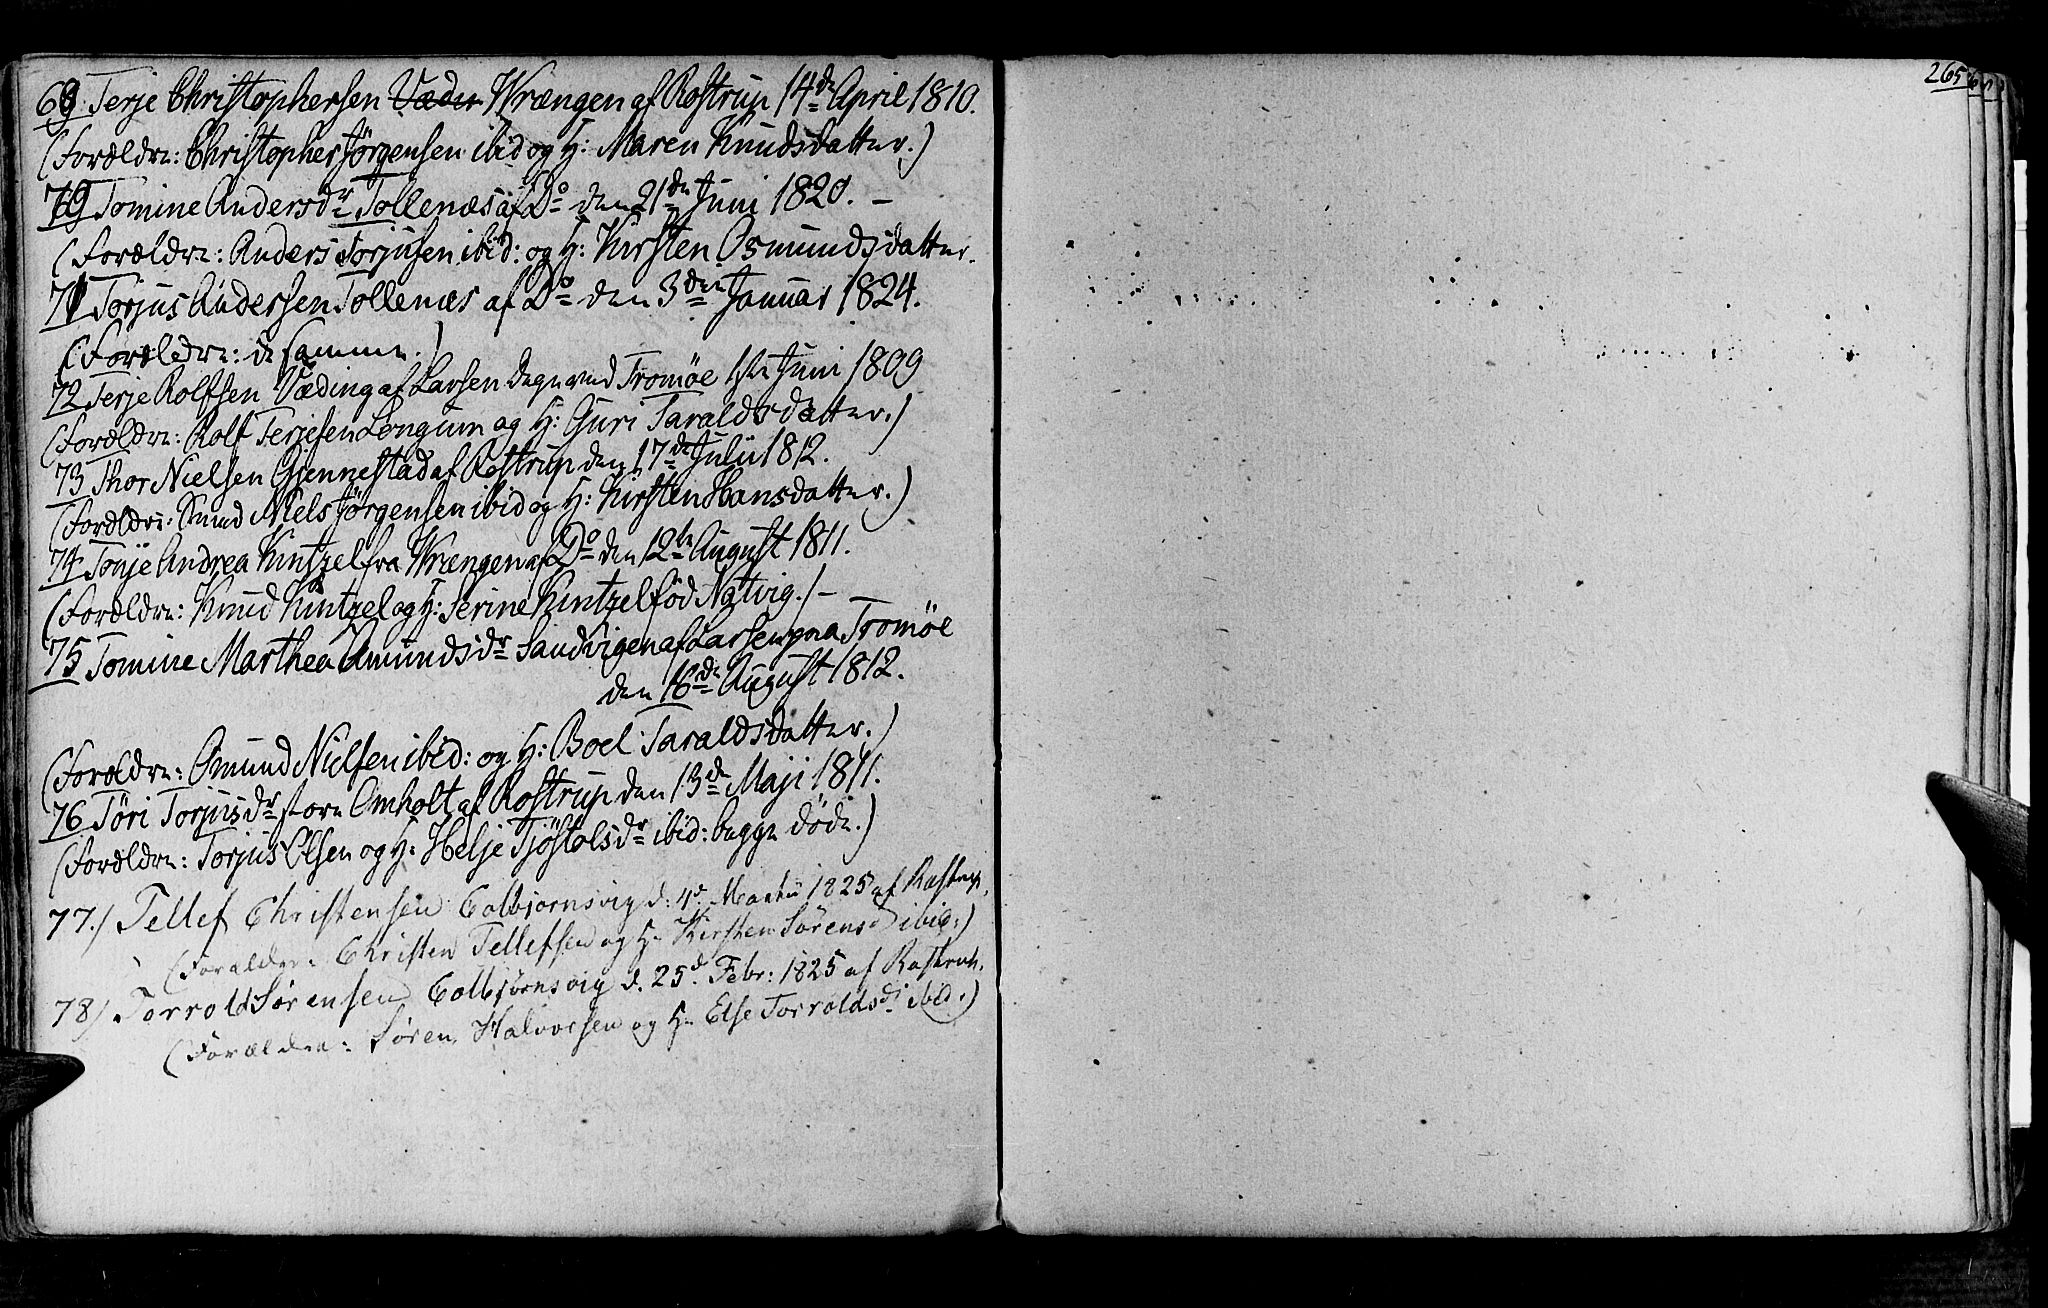 69. Terje Christophersen Væder Wrængen af Rostrup 14de April 1810.
(Forældre: Christopher Jørgensen ibid og H: Maren Knudsdatter.)
70 Tomine Andersdr Tollenæs af Do den 21de Juni 1820. –
(Forældre: Anders Torjusen ibid: og H: Kirsten Osmundsdatter.
71 Torjus Andersen Tollenæs af Do den 3die Januar 1824.
(Forældre: de samme.)
72 Terje Rolfsen Væding af Larsen Tromøe 1ste Juni 1809
(Forældre: Rolf Terjesen Longum og H: Guri Taraldsdatter.)
73 Thor Nielsen Gjennestad af Rostrup den 17de Julii 1812.
(Forældre: Niels Jørgensen ibid og H: Kirsten Hansdatter.)
74 Tonje Andrea Kintzel fra Wrængen af Do den 12te August 1811.
(Forældre: Knud Kintzel og H: Serine Kintzel fød Natvig.) –
75 Tomine Marthea Amundsdr Sandvigen af Larsen paa Tromøe
den 16de August 1812.
(Forældre: Omund Nielsen ibid: og H: Boel Taraldsdatter.)
76 Tøri Torjusdr store Omholt af Rostrup den 13de Maji 1811.
(Forældre: Torjus Olsen og H: Helje Tjøstolsdr ibid: begge døde.)
77.) Tellef Christensen Colbjørnsvig d: 4de Martii 1825 af Rostrup.
(Forældre: Christen Tellefsen og H: Kirsten Sørensd ibid.)
78) Torrold Sørensen Colbjørnsvig d. 25d. Febr: 1825 af Rostrup.
(Forældre: Søren Halvorsen og H: Else Torroldsd: ibid.)
265